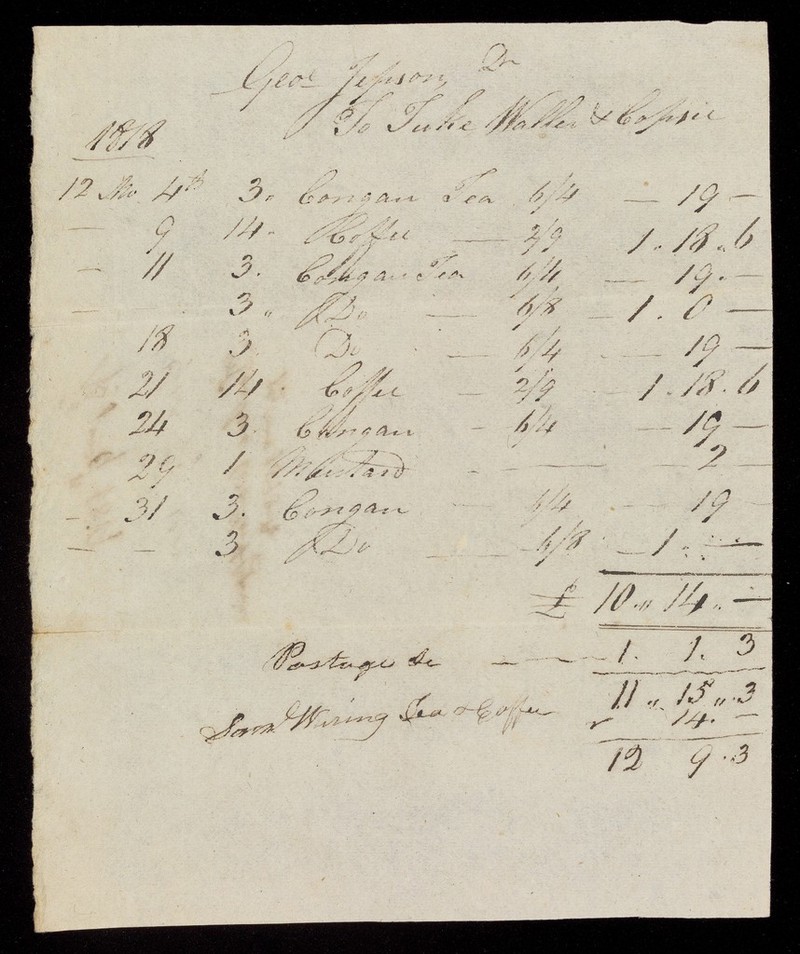 Geo. Jepson, Dr
To Tuke Waller & Copsie
1818
12 Mo 4th 3 " Congau Tea 6/4 — 19 —
— 9 14 " Coffee — 2/9 1 " 18 " 6
— 11 3 . Congau Tea 6/4 — 19 . —
— 3 " Do — 6/8 — 1 . 0 —
18 3 . Do — 6/4 — 19 —
21 14 . Coffee — 2/9 — 1 . 18 . 6
24 3 . Congau — 6/4 — 19 —
29 1 Mustard — — — 2 —
— 31 3 . Congau 6/4 — 19 —
— — 3 Do — 6/8 — 1 " " —
£ 10 " 14 " —
Postage &c — 1 . 1 . 3
11 " 15 " 3
Tea & Coffee 14 . —
12 9 . 3